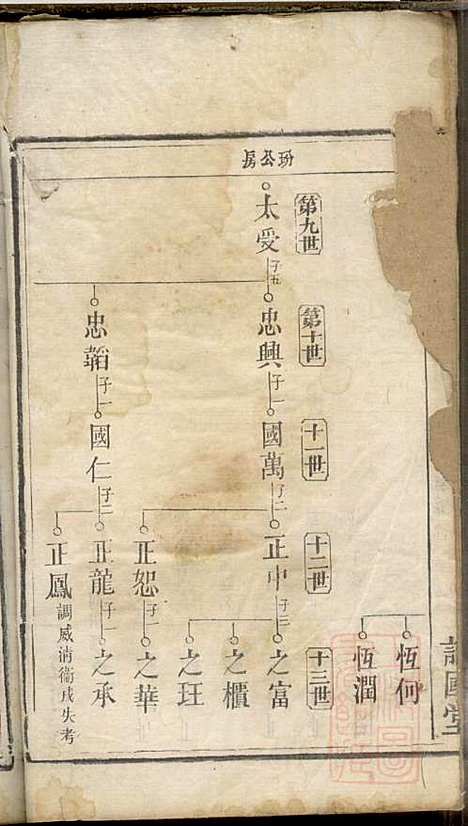 玬公房
第九世
第十世
十一世
十二世
十三世
恆何
恆潤
太受 子五
忠興 子一
國萬 子二
正中 子三
之富
之櫃
之玨
正恕 子一
之華
忠韜 子一
國仁 子二
正龍 子一
之承
正鳳 調威清衛戍失考